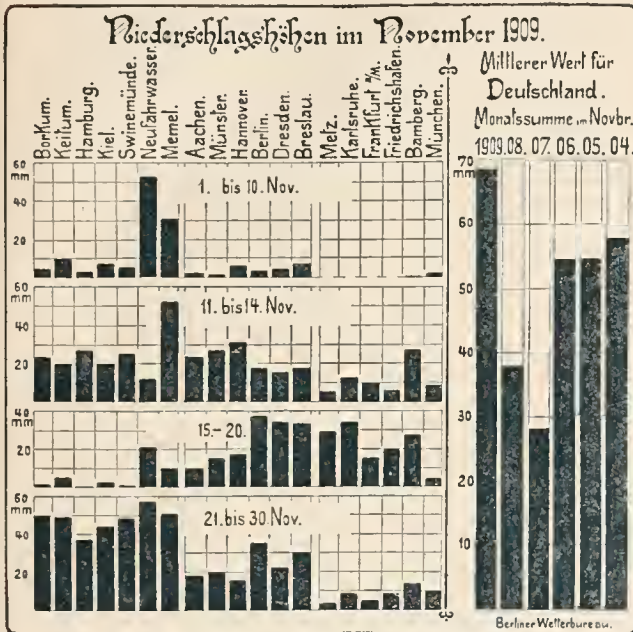 Niederschlagshöhen im November 1909.
Borkum.
Keitum.
Hamburg.
Kiel.
Swinemünde.
Neufahrwasser.
Memel.
Aachen.
Münster.
Hannover.
Berlin.
Dresden.
Breslau.
Metz.
Karlsruhe.
Frankfurt a/M.
Friedrichshafen.
Bamberg.
München.
60
mm
40
20
1. bis 10. Nov.
60
mm
40
20
11. bis 14. Nov.
40
mm
20
15.–20.
60
mm
40
20
21. bis 30. Nov.
Mittlerer Wert für
Deutschland.
Monatssumme im Novbr.
1909. 08. 07. 06. 05. 04.
70
mm
60
50
40
30
20
10
Berliner Wetterbureau.